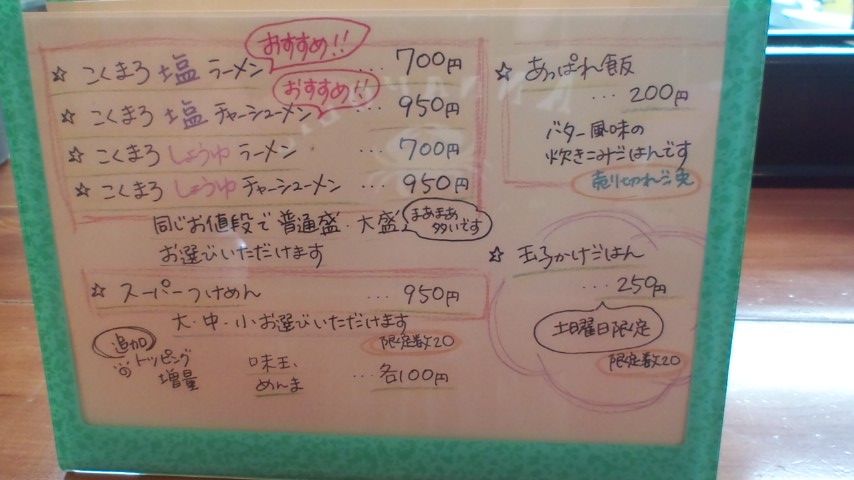 おすすめ!!
☆ こくまろ 塩 ラーメン ... 700円
おすすめ!!
☆ こくまろ 塩 チャーシューメン ... 950円
☆ こくまろ しょうゆ ラーメン ... 700円
☆ こくまろ しょうゆ チャーシューメン ... 950円
同じお値段で 普通盛・大盛
まあまあ
多いです
お選びいただけます
☆ スーパーつけめん ... 950円
大・中・小お選びいただけます
限定数20
追加
トッピング
増量
味玉、
めんま ... 各100円
☆ あっぱれ飯
... 200円
バター風味の
炊きこみごはんです
売り切れご免
☆ 玉子かけごはん
... 250円
土日曜日限定
限定数20